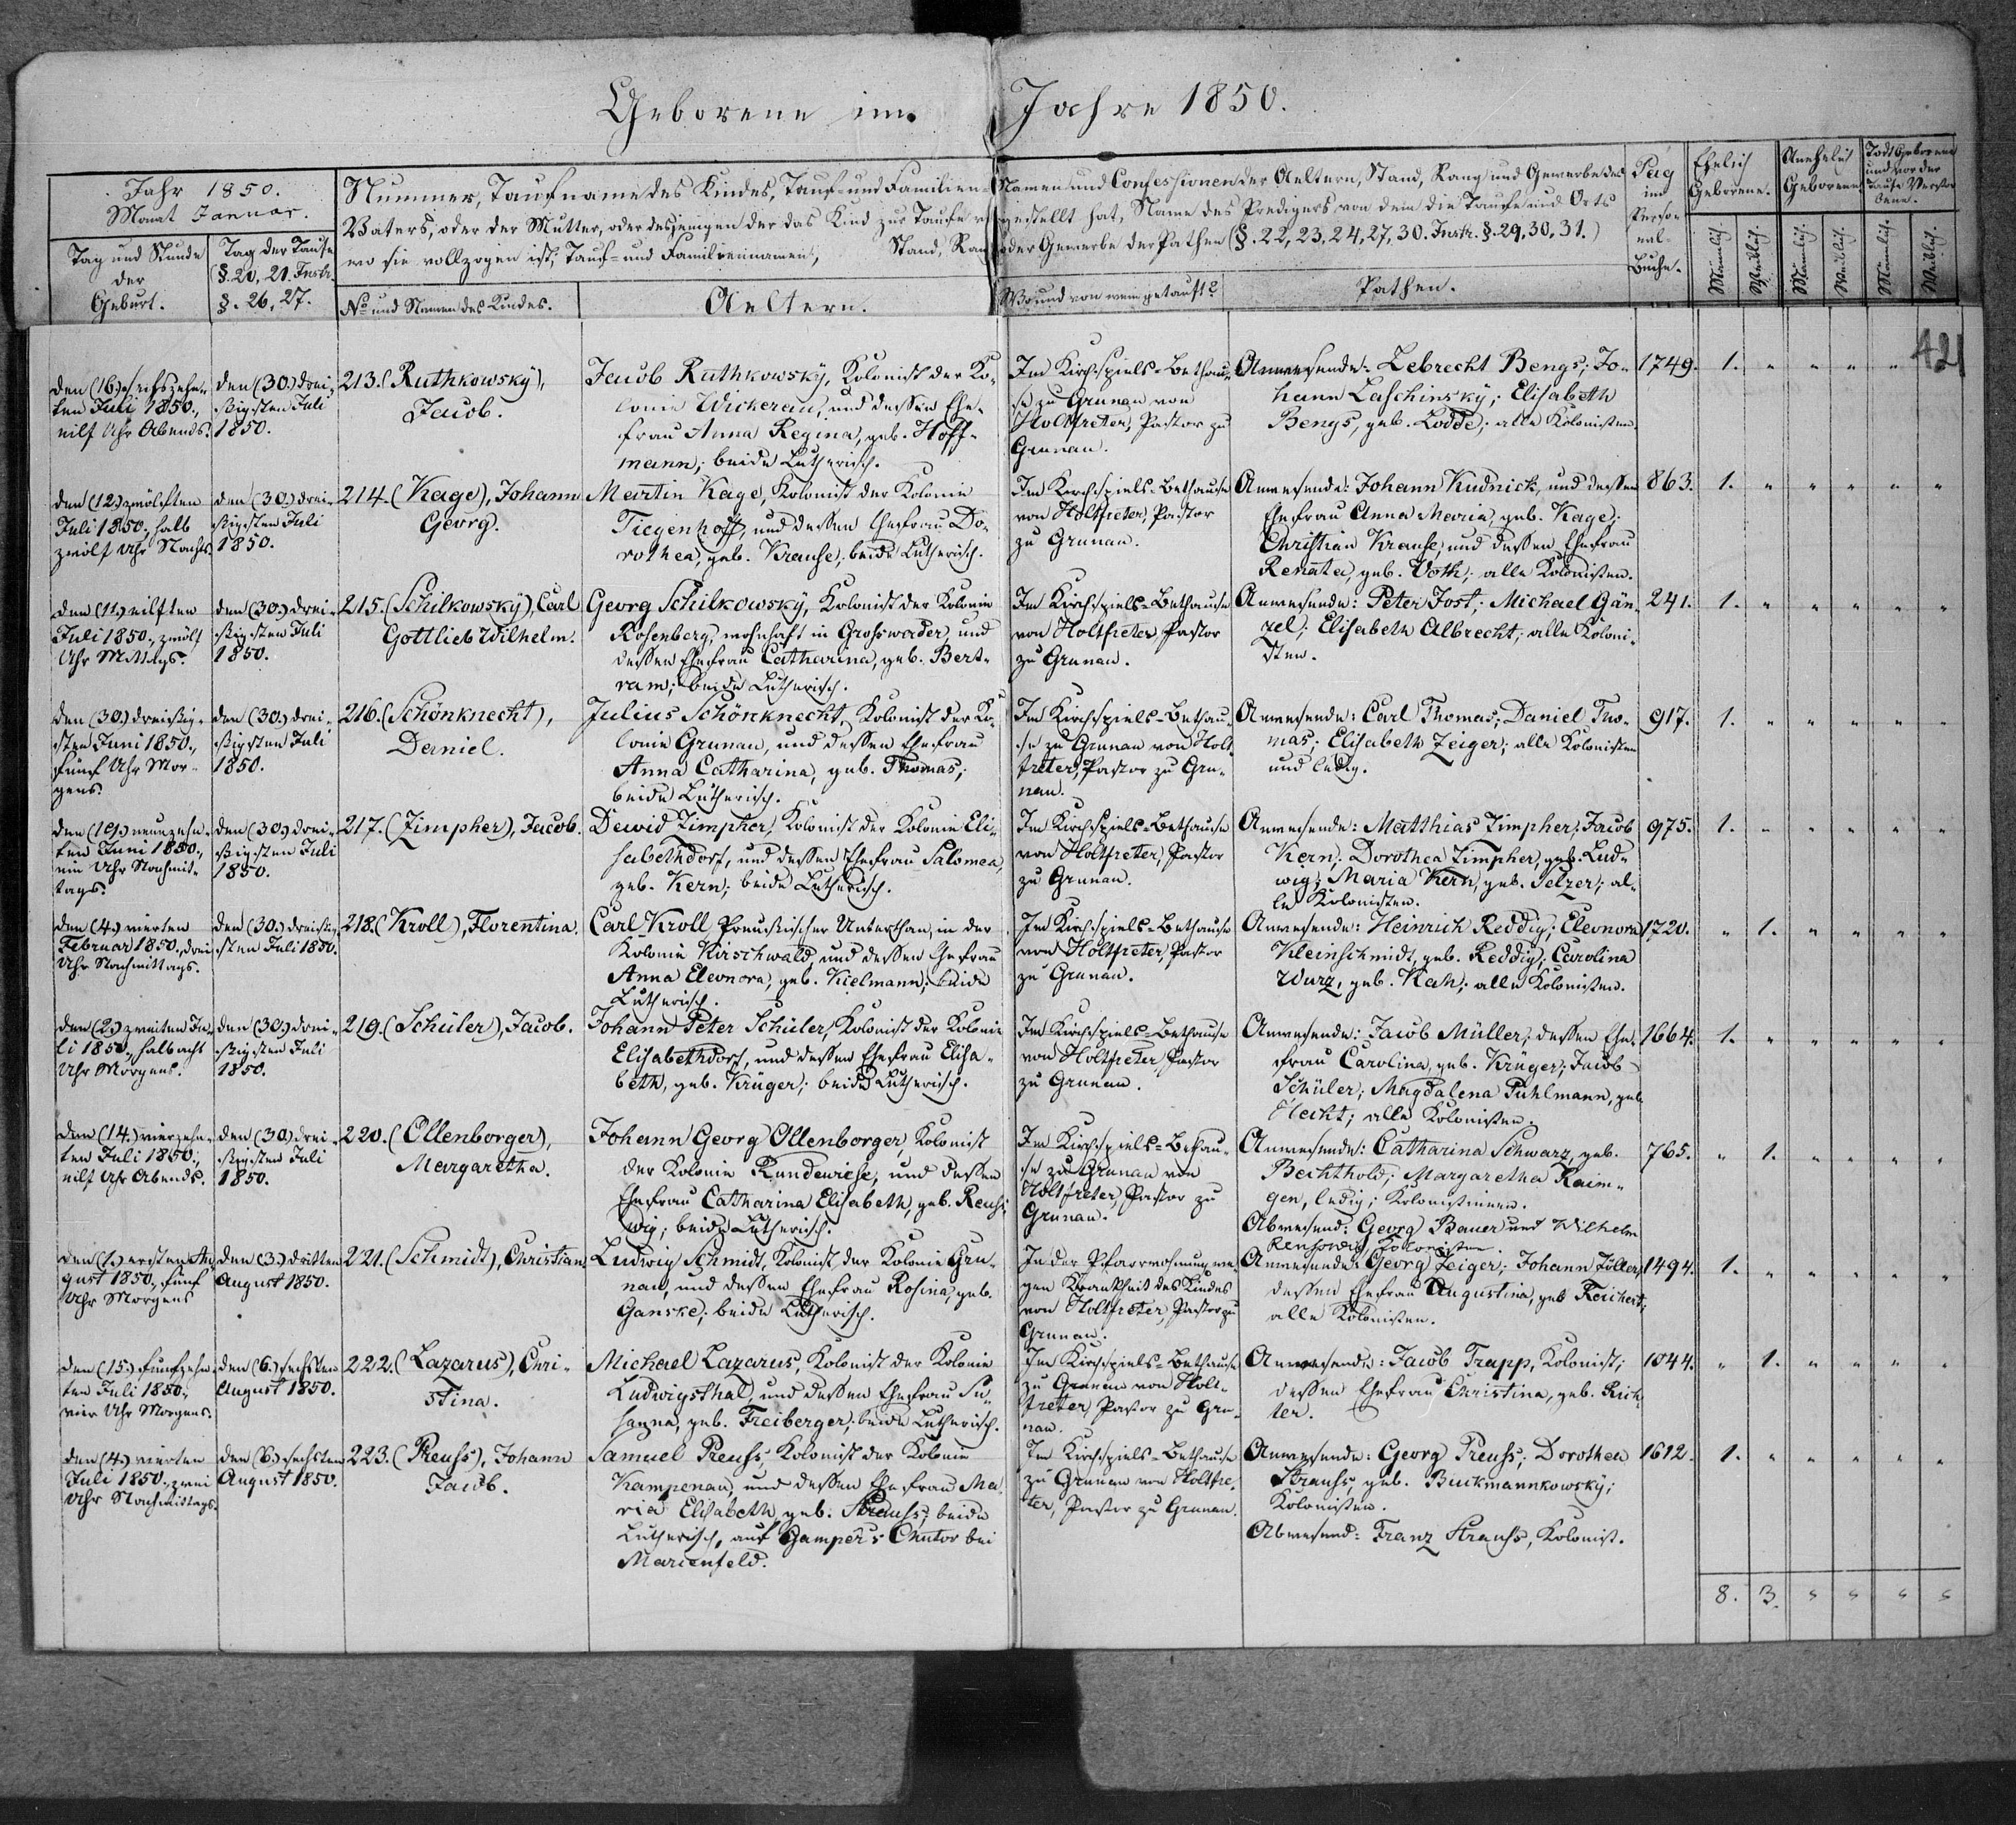 Geborene im Jahre 1850.
421
Jahr 1850.
Monat Januar.
Tag und Stunde
der
Geburt.
Tag der Taufe
§. 20, 21. Instr.
§. 26, 27.
Nummer, Taufname des Kindes, Tauf- und Familien- Namen und Confessionen der Aeltern, Stand, Rang und Gewerbe des
Vaters, oder der Mutter, oder desjenigen der das Kind zur Taufe gestellt hat, Name des Predigers von dem die Taufe und Orts
wo sie vollzogen ist; Tauf- und Familiennamen, Stand, Rang oder Gewerbe der Pathen (§. 22, 23, 24, 27, 30. Instr. §. 29, 30, 31.)
No und Namen des Kindes.
Aeltern.
Wo und von wem getauft?
Pathen.
Pag
im
Perso-
nal-
Buche.
Ehelich
Geborene.
Unehelich
Geborene
Todt Geborene
und vor der
Taufe Verstor
bene.
Männlich.
Weiblich.
Männlich.
Weiblich.
Männlich.
Weiblich.
den (16.) sechszehn-
ten Juli 1850.,
eilf Uhr Abends.
den (30.) drei-
ßigsten Juli
1850.
213. (Ruthkowsky),
Jacob.
Jacob Ruthkowsky, Kolonist der Ko-
lonie Wickerau, und dessen Ehe-
frau Anna Regina, geb. Hoff-
mann; beide Lutherisch.
Im Kirchspiels-Bethau-
se zu Grunau von
Holtfreter, Pastor zu
Grunau.
Anwesende: Lebrecht Bengs; Jo-
hann Laschinsky; Elisabeth
Bengs, geb. Lodde; alle Kolonisten.
1749.
1. " " " "
den (12.) zwölften
Juli 1850., halb
zwölf Uhr Nachts
den (30.) drei-
ßigsten Juli
1850.
214. (Kage), Johann
Georg.
Martin Kage, Kolonist der Kolonie
Tiegenhoff, und dessen Ehefrau Do-
rothea, geb. Krause, beide Lutherisch.
Im Kirchspiels-Bethause
von Holtfreter, Pastor
zu Grunau.
Anwesende: Johann Kudnick, und dessen
Ehefrau Anna Maria, geb. Kage;
Christian Krause, und dessen Ehefrau
Renata, geb. Voth; alle Kolonisten.
863.
1. " " " " "
den (11.) eilften
Juli 1850., zwölf
Uhr Mittags.
den (30.) drei-
ßigsten Juli
1850.
215. (Schilkowsky), Carl
Gottlieb Wilhelm.
Georg Schilkowsky, Kolonist der Kolonie
Rosenberg, wohnhaft in Grosswerder, und
dessen Ehefrau Catharina, geb. Bert-
ram; beide Lutherisch.
Im Kirchspiels-Bethause
von Holtfreter, Pastor
zu Grunau.
Anwesende: Peter Jost; Michael Gän-
zel; Elisabeth Albrecht, alle Koloni-
sten.
241.
1. " " " " "
den (30.) dreißig-
sten Juni 1850.,
fünf Uhr Mor-
gens.
den (30.) drei-
ßigsten Juli
1850.
216. (Schönknecht),
Daniel.
Julius Schönknecht, Kolonist der Ko-
lonie Grunau, und dessen Ehefrau
Anna Catharina, geb. Thomas;
beide Lutherisch.
Im Kirchspiels-Bethau-
se zu Grunau von Holt
freter, Pastor zu Gru-
nau.
Anwesende: Carl Thomas; Daniel Tho-
mas; Elisabeth Zeiger; alle Kolonisten
und ledig.
917.
1. " " " " "
den (19.) neunzehn-
ten Juni 1850.,
ein Uhr Nachmit-
tags.
den (30.) drei-
ßigsten Juli
1850.
217. (Zimpher), Jacob.
Dewid Zimpher, Kolonist der Kolonie Eli-
sabethdorf, und dessen Ehefrau Salomea,
geb. Kern; beide Lutherisch.
Im Kirchspiels-Bethause
von Holtfreter, Pastor
zu Grunau.
Anwesende: Matthias Zimpher; Jacob
Kern; Dorothea Zimpher, geb. Lud-
wig; Maria Kern, geb. Selzer; al-
le Kolonisten.
975.
1. " " " " "
den (4.) vierten
Februar 1850., drei
Uhr Nachmittags.
den (30.) dreißig-
sten Juli 1850.
218. (Kroll), Florentina.
Carl Kroll, Preußischer Unterthan, in der
Kolonie Kirschwald und dessen Ehefrau
Anna Eleonora, geb. Kielmann; beide
Lutherisch.
Im Kirchspiels-Bethause
von Holtfreter, Pastor
zu Grunau.
Anwesende: Heinrich Reddig; Eleonora
Kleinschmidt, geb. Reddig; Carolina
Wurz, geb. Kah; alle Kolonisten.
1720.
" 1. " " " "
den (2.) zweiten Ju-
li 1850., halb acht
Uhr Morgens.
den (30.) drei-
ßigsten Juli
1850.
219. (Schüler), Jacob.
Johann Peter Schüler, Kolonist der Kolonie
Elisabethdorf, und dessen Ehefrau Elisa-
beth, geb. Krüger; beide Lutherisch.
Im Kirchspiels-Bethause
von Holtfreter, Pastor
zu Grunau.
Anwesende: Jacob Müller; dessen Ehe-
frau Carolina, geb. Krüger; Jacob
Schüler; Magdalena Puhlmann, geb.
Hecht; alle Kolonisten.
1664.
1. " " " " "
den (14.) vierzehn-
ten Juli 1850.,
eilf Uhr Abends.
den (30.) drei-
ßigsten Juli
1850.
220. (Ollenborger),
Margaretha.
Johann Georg Ollenborger, Kolonist
der Kolonie Rundewiese, und dessen
Ehefrau Catharina Elisabeth, geb. Reusch-
wig; beide Lutherisch.
Im Kirchspiels-Bethau-
se zu Grunau von
Holtfreter, Pastor zu
Grunau.
Anwesende: Catharina Schwarz, geb.
Bechthold; Margaretha Raim-
gen, ledig; Kolonistinnen.
Abwesend: Georg Bauer und Wilhelm
Kolonisten.
765.
" 1. " " " "
den (1.) ersten Au
gust 1850., fünf
Uhr Morgens
den (3.) dritten
August 1850.
221. (Schmidt), Christian.
Ludwig Schmidt, Kolonist der Kolonie Gru-
nau, und dessen Ehefrau Rosina, geb.
Ganske; beide Lutherisch.
In der Pfarrwohnung we-
gen Krankheit des Kindes
von Holtfreter, Pastor zu
Grunau.
Anwesende: Georg Zeiger; Johann Zöller,
dessen Ehefrau Augustina, geb Reichert;
alle Kolonisten.
1494.
1. " " " " "
den (15.) fünfzehn-
ten Juli 1850.,
vier Uhr Morgens.
den (6.) sechsten
August 1850.
222. (Lazarus), Chri-
stina.
Michael Lazarus, Kolonist der Kolonie
Ludwigsthal, und dessen Ehefrau Su-
sanna, geb. Freiberger; beide Lutherisch.
Im Kirchspiels-Bethause
zu Grunau von Holt-
freter, Pastor zu Gru-
nau.
Anwesende: Jacob Trapp, Kolonist;
dessen Ehefrau Christina, geb. Rich-
ter.
1044.
" 1. " " " "
den (4.) vierten
Juli 1850., zwei
Uhr Nachmittags.
den (6.) sechsten
August 1850.
223. (Preuss), Johann
Jacob.
Samuel Preuss, Kolonist der Kolonie
Kampenau, und dessen Ehefrau Ma-
ria Elisabeth, geb. Strauss; beide
Lutherisch, auf Gamper's Chutor bei
Marienfeld.
Im Kirchspiels-Bethause
zu Grunau von Holtfre-
ter, Pastor zu Grunau.
Anwesende: Georg Preuss; Dorothea
Strauss, geb. Buckmannkowsky;
Kolonisten.
Abwesend: Franz Strauss, Kolonist.
1612.
1. " " " " "
8. 3. " " " "